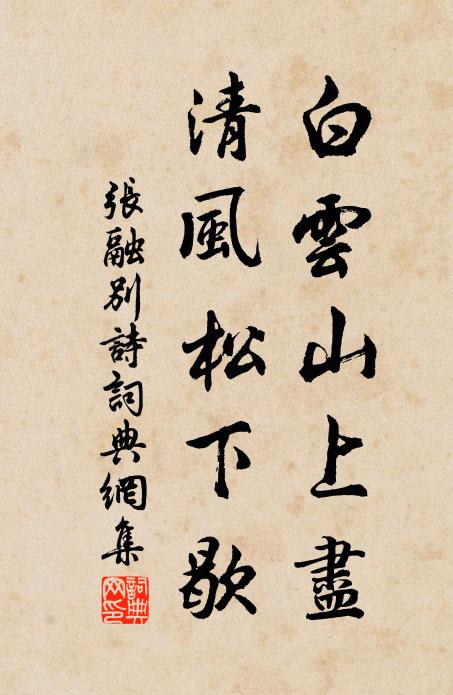 白雲山上盡
清風松下歇
張融別詩詞典網集
詞典網印